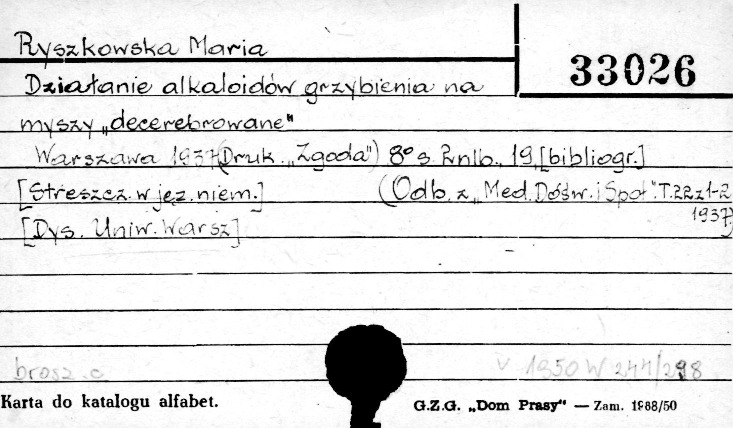 Ryszkowska Maria
33026
Działanie alkaloidów grzybienia na
myszy „decerebrowane"
Warszawa 1937 (Druk. „Zgoda") 8° s. 2 nlb., 19, [bibliogr.]
[Streszcz. w jęz. niem.] (Odb. z „Med. Dośw. i Społ". T. 22 z 1-2
1937.)
[Dys. Uniw. Warsz]
brosz. c v 1950 W 244/298
Karta do katalogu alfabet. G.Z.G. „Dom Prasy" — Zam. 1988/50